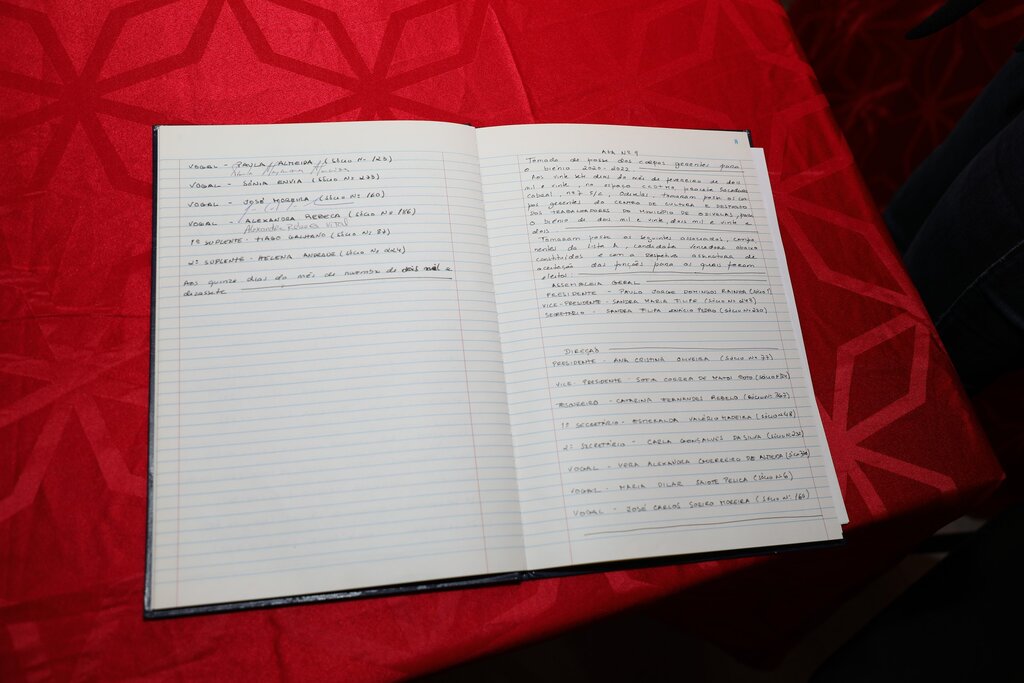 VOGAL - PAULA ALMEIDA (SÓCIO Nº 123)
VOGAL - SÓNIA ENVIA (SÓCIO Nº 233)
VOGAL - JOSÉ MOREIRA (SÓCIO Nº 160)
VOGAL - ALEXANDRA REBECA (SÓCIO Nº 156)
Alexandra Rebeca Vital
1º SUPLENTE - TIAGO GALHANO (SÓCIO Nº 87)
2º SUPLENTE - HELENA ANDRADE (SÓCIO Nº 224)
Aos quinze dias do mês de novembro de dois mil e
dezassete
ATA Nº 9
Tomada de posse dos corpos gerentes para
o biénio 2020-2022
Aos vinte dias do mês de fevereiro de dois
mil e vinte, no espaço praceta Sacadura
Cabral, nº7 5/c, Odivelas, tomaram posse os cor
pos gerentes do CENTRO DE CULTURA E DESPORTO
DOS TRABALHADORES DO MUNICÍPIO DE ODIVELAS, para
o biénio de dois mil e vinte, dois mil e vinte e
dois
Tomaram posse os seguintes associados, compo
nentes da lista A, candidata vencedora abaixo
constituídos e com a respetiva assinatura de
aceitação das funções para as quais foram
eleitos:
ASSEMBLEIA GERAL
PRESIDENTE - PAULO JORGE DOMINGOS (SÓCIO
VICE-PRESIDENTE - SANDRA MARIA FILIPE (SÓCIO Nº 243)
SECRETÁRIO - SANDRA FILIPA IGNÁCIO PEDRO (SÓCIO Nº 230)
DIREÇÃO
PRESIDENTE - ANA CRISTINA OLIVEIRA (SÓCIO Nº 77)
VICE-PRESIDENTE - SOFIA CORREA DE MATOS (SÓCIO
TESOUREIRO - CATARINA FERNANDES REBELO (SÓCIO Nº 367)
1º SECRETÁRIO - ESMERALDA VALÉRIO MADEIRA (SÓCIO Nº 48)
2º SECRETÁRIO - CARLA GONÇALVES DA SILVA (SÓCIO Nº
VOGAL - VERA ALEXANDRA GUERREIRO DE ALMEIDA (SÓCIO
VOGAL - MARIA PILAR PELICA (SÓCIO Nº 6)
VOGAL - JOSÉ CARLOS SOEIRO MOREIRA (SÓCIO Nº 160)